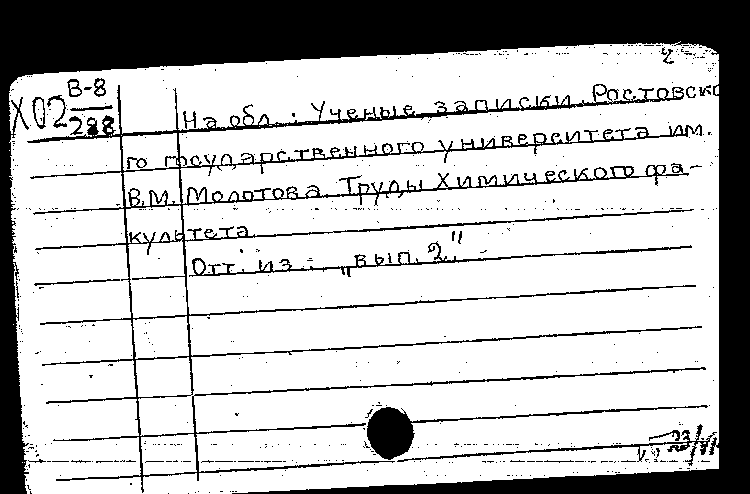 2
Х02 В-8
288
На обл.: Ученые записки Ростовско
го государственного университета им.
В.М. Молотова. Труды Химического фа-
культета
Отт. из.: „вып. 2."